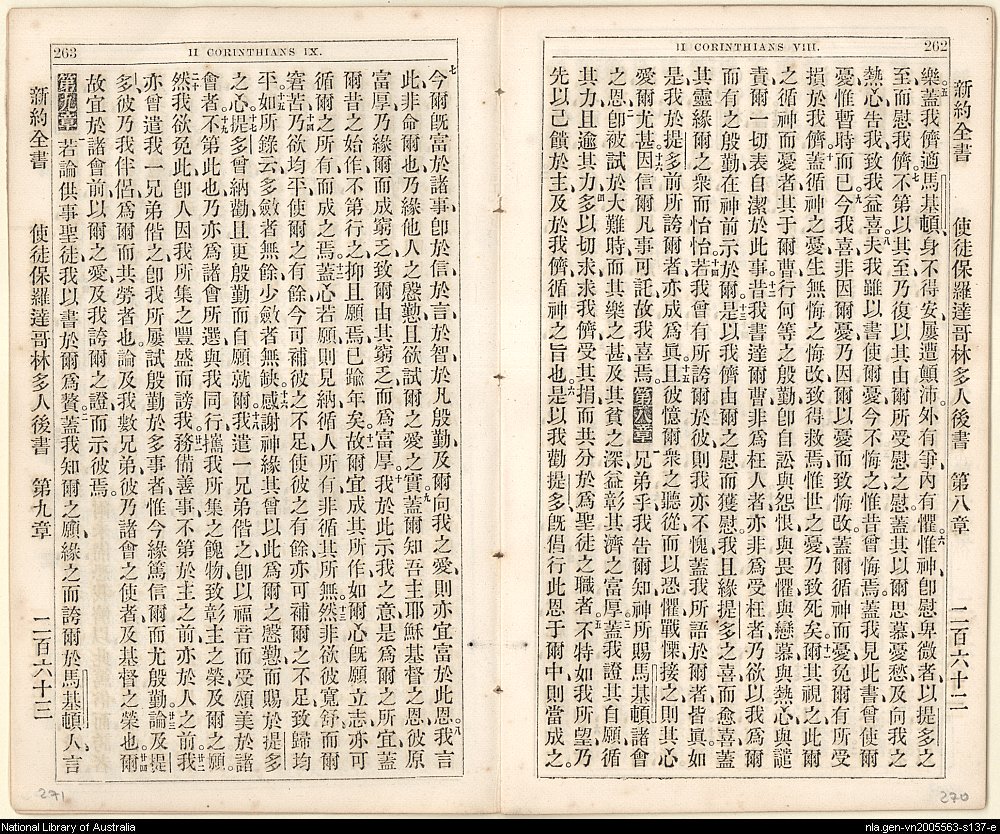 262
II CORINTHIANS VIII.
新約全書 使徒保羅達哥林多人後書 第八章 二百六十二
樂五蓋我儕適馬基頓、身不得安、屢遭顛沛、外有爭、內有懼、六惟神卽慰卑微者、以提多之
至而慰我儕、七不第以其至、乃復以其由爾所受慰之慰、蓋其以爾思慕憂愁及向我之
熱心告我、致我益喜、八夫我雖以書使爾憂、今不悔之、惟昔曾悔焉、蓋我見此書曾使爾
憂、惟暫時而已、九今我喜、非因爾憂、乃因爾以憂而致悔改、蓋爾循神而憂、免爾有所受
損於我儕、十蓋循神之憂、生無悔之悔改、致得救焉、惟世之憂、乃致死矣、十一爾其視之、此爾
之循神而憂者、其于爾曹行何等之殷勤、卽自訟與怨恨與畏懼與戀慕與熱心與譴
責、爾一切表自潔於此事、十二昔我書達爾曹、非爲枉人者、亦非爲受枉者、乃欲以我爲爾
而有之殷勤、在神前示於爾、十三是以我儕由爾之慰而獲慰、我且緣提多之喜而愈喜、蓋
其靈緣爾之衆而怡怡、十四若我曾有所誇爾於彼、則我亦不愧、蓋我所語於爾者皆眞、如
是、我於提多前所誇爾者、亦成爲眞、十五且彼憶爾衆之聽從、而以恐懼戰慄接之、則其心
愛爾尤甚、十六因信爾凡事可託、故我喜焉、第八章 一兄弟乎、我告爾知、神所賜馬基頓諸會
之恩、二卽被試於大難時、而其樂之甚、及其貧之深、益彰其濟之富厚、三蓋我證其自願循
其力、且逾其力、四多以切求、求我儕受其捐、而共分於爲聖徒之職者、五不特如我所望、乃
先以己饋於主、及於我儕、循神之旨也、六是以我勸提多、旣倡行此恩于爾中、則當成之、
270
263
II CORINTHIANS IX.
七今爾旣富於諸事、卽於信、於言、於智、於凡殷勤、及爾向我之愛、則亦宜富於此恩、八我言
此、非命爾也、乃緣他人之慇懃、且欲試爾之愛之實、九蓋爾知吾主耶穌基督之恩、彼原
富厚、乃緣爾而成窮乏、致爾由其窮乏而爲富厚、十我於此示我之意、是爲爾之所宜、蓋
爾昔之始作、不第行之、抑且願焉、已踰年矣、十一故爾宜成其所作、如爾心旣願立志、亦可
循爾之所有而成之焉、十二蓋心若願、則見納、循人所有、非循其所無、十三然非欲彼寬舒、而爾
窘苦、十四乃欲均平、使爾之有餘、今可補彼之不足、使彼之有餘、亦可補爾之不足、致歸均
平、十五如所錄云、多斂者無餘、少斂者無缺、十六感謝神、緣其曾以此爲爾之慇懃、而賜於提多
之心、十七提多曾納勸、且更殷勤而自願就爾、十八我遣一兄弟偕之、卽以福音而受頌美於諸
會者、十九不第此也、乃亦爲諸會所選、與我同行、攜我所集之餽物、致彰主之榮、及爾之願、
二十然我欲免此、卽人因我所集之豐盛而謗我、廿一我務備善事、不第於主之前、亦於人之前、廿二我
亦曾遣我一兄弟偕之、卽我所屢試殷勤於多事者、惟今緣篤信爾而尤殷勤、廿三論及提
多、彼乃我伴侶、爲爾而共勞者也、論及我數兄弟、彼乃諸會之使者、及基督之榮也、廿四爾
故宜於諸會前、以爾之愛、及我誇爾之證而示彼焉、
第九章 一若論供事聖徒、我以書於爾爲贅、二蓋我知爾之願、緣之而誇爾於馬基頓人、言
新約全書 使徒保羅達哥林多人後書 第九章 二百六十三
271
National Library of Australia
nla.gen-vn2005563-s137-e